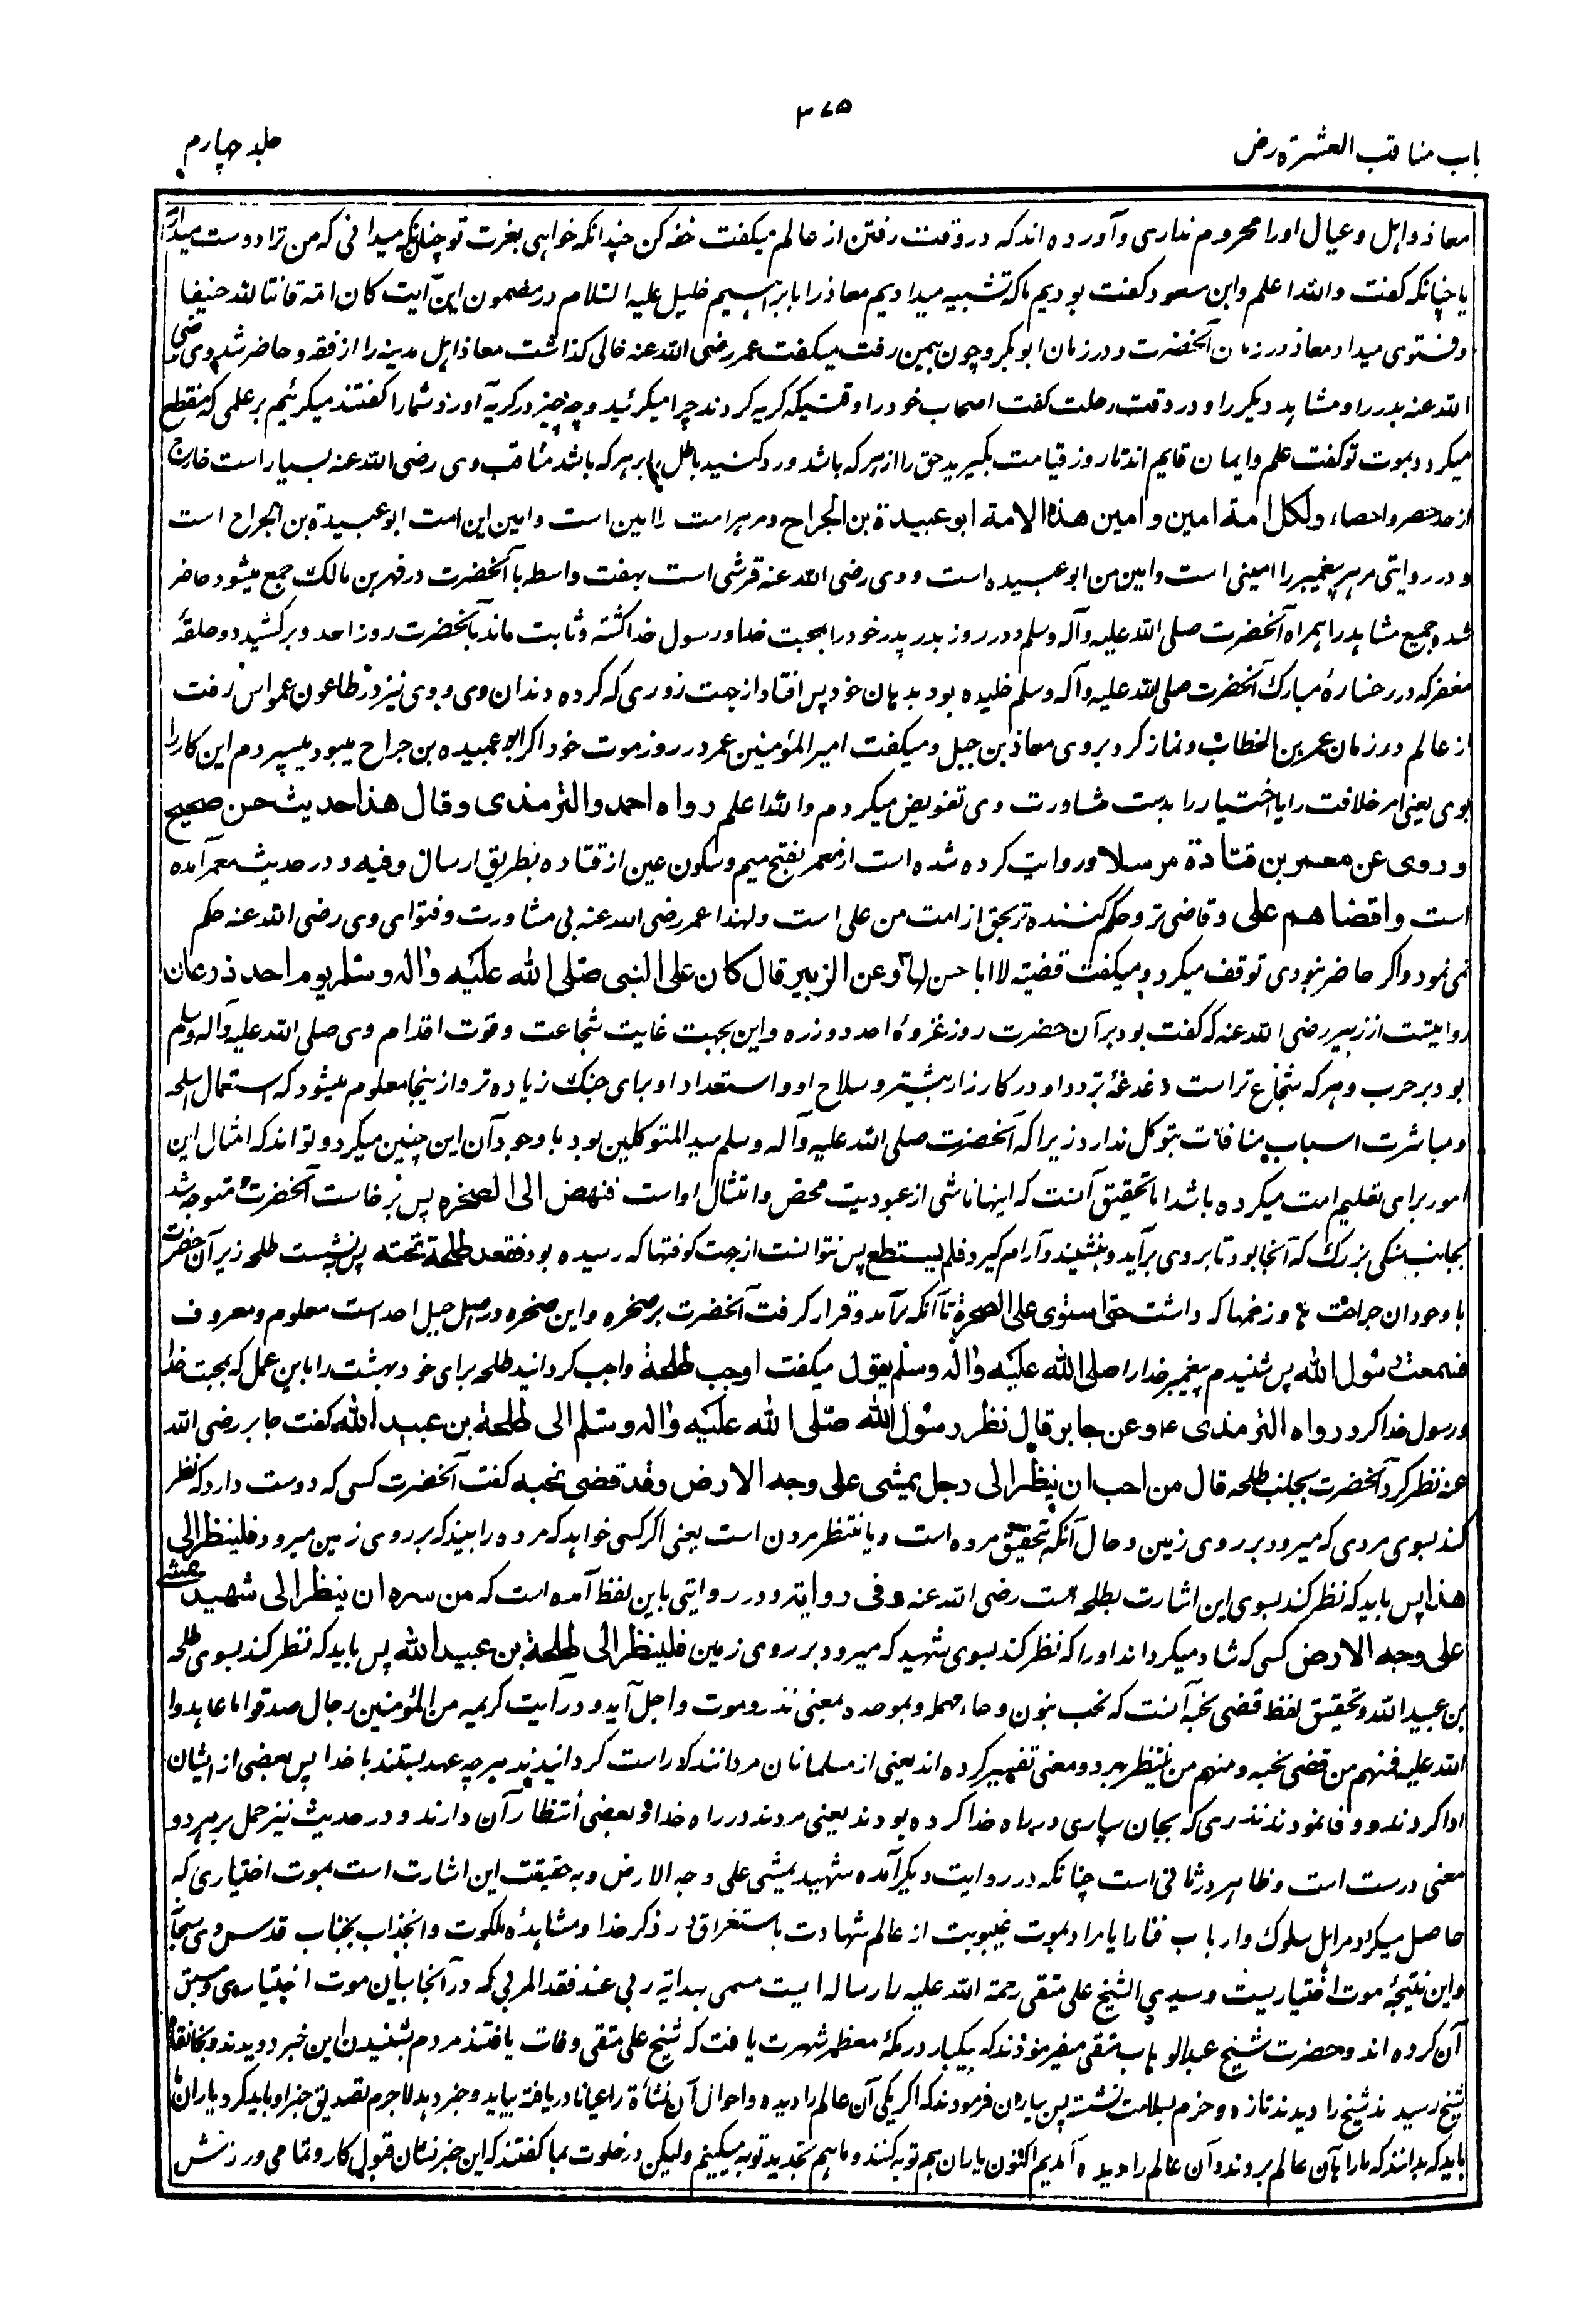 ۳۷۵
باب مناقب العشرة رض
جلد چهارم
معاذ و اہل و عیال او را محروم نداری و آورده اند که در وقت رفتن از عالم میگفت خفه کن چندانکه خواہی بعزت تو چنانکه میدانی که من ترا دوست میدارم
یا چنانکه گفت واللہ اعلم و ابن مسعود گفت بودیم ما که تشبیه میدادیم معاذ را بابراہیم خلیل علیه السلام در مضمون این آیت کان امة قانتا للہ حنیفا
و فتوی میداد معاذ در زمان آنحضرت و در زمان ابوبکر و چون بیمن رفت میگفت عمر رضی اللہ عنہ خالی گذاشت معاذ اہل مدینه را از فقه و حاضر شد وی رضی
اللہ عنہ بدر را و مشاہد دیگر را و در وقت رحلت گفت اصحاب خود را وقتیکه گریه کردند چرا میگرئید و چه چیز در گریه آورد شما را گفتند میگرئیم بر علمی که منقطع
میگردد بموت تو گفت علم و ایمان قایم اند تا روز قیامت بگیرید حق را از ہر که باشد و رد کنید باطل را بر ہر که باشد مناقب وی رضی اللہ عنہ بسیار است خارج
از حد حصر و احصاء ولکل امة امین وامین هذه الامة ابو عبیدة بن الجراح و مر ہر امت را امین است و امین این امت ابو عبیدة بن الجراح است
و در روایتی مر ہر پیغمبر را امینی است و امین من ابو عبیده است و وی رضی اللہ عنہ قرشی است بہفت واسطه با آنحضرت در فہر بن مالک جمع میشود حاضر
شده جمیع مشاہد را ہمراه آنحضرت صلی اللہ علیه وآله وسلم و در روز بدر پدر خود را بمحبت خدا و رسول خدا کشته و ثابت ماند با آنحضرت روز احد و برکشید دو حلقهٔ
مغفر که در رخسارهٔ مبارک آنحضرت صلی اللہ علیه وآله وسلم خلیده بود بدہان خود پس افتاد از جہت زوری که کرده دندان وی و وی نیز در طاعون عمواس رفت
از عالم در زمان عمر بن الخطاب و نماز کرد بروی معاذ بن جبل و میگفت امیر المؤمنین عمر در روز موت خود اگر ابو عبیده بن جراح میبود میسپردم این کار را
بوی یعنی امر خلافت را یا اختیار را بدست مشاورت وی تفویض میکردم واللہ اعلم رواه احمد والترمذی وقال هذا حدیث حسن صحیح
وروی عن معمر بن قتادة مرسلا و روایت کرده شده است از معمر بفتح میم و سکون عین از قتاده بطریق ارسال وفیه و در حدیث معمر آمده
است واقضاهم علی و قاضی تر و حکم کننده تر بحق از امت من علی است ولہذا عمر رضی اللہ عنہ بی مشاورت و فتوای وی رضی اللہ عنہ حکم
نمی نمود و اگر حاضر نبودی توقف میکرد و میگفت قضیة لا ابا حسن لہا وعن الزبیر قال کان علی النبی صلی الله علیه واله وسلم یوم احد درعان
روایتست از زبیر رضی اللہ عنہ که گفت بود بر آن حضرت روز غزوهٔ احد دو زره و این بجہت غایت شجاعت و قوت اقدام وی صلی اللہ علیه وآله وسلم
بود بر حرب و ہر که شجاع تر است دغدغهٔ تردد او در کارزار بیشتر و سلاح او و استعداد او برای جنگ زیاده تر و از ینجا معلوم میشود که استعمال اسلحه
و مباشرت اسباب منافات بتوکل ندارد زیرا که آنحضرت صلی اللہ علیه وآله وسلم سید المتوکلین بود با وجود آن این چنین میکرد و تواند که امثال این
امور برای تعلیم امت میکرده باشد اما تحقیق آنست که اینہا ناشی از عبودیت محض و امتثال او است فنهض الی الصخرة پس برخاست آنحضرت و متوجه شد
بجانب سنگی بزرگ که آنجا بود تا بر وی برآید و بنشیند و آرام گیرد فلم یستطع پس نتوانست از جہت کوفتہا که رسیده بود فقعد طلحة تحته پس نشست طلحه زیر آن حضرت
با وجود آن جراحت ہا و زخمہا که داشت حتی استوی علی الصخرة تا آنکه برآمد و قرار گرفت آنحضرت بر صخره و این صخره در اصل جبل احد است معلوم و معروف
فسمعت رسول الله پس شنیدم پیغمبر خدا را صلی الله علیه واله وسلم یقول میگفت اوجب طلحة واجب گردانید طلحه برای خود بہشت را باین عمل که بمحبت خدا
و رسول خدا کرد رواه الترمذی ۴ وعن جابر قال نظر رسول الله صلی الله علیه واله وسلم الی طلحة بن عبید الله گفت جابر رضی اللہ
عنہ نظر کرد آنحضرت بجانب طلحه قال من احب ان ینظر الی رجل یمشی علی وجه الارض وقد قضی نحبه گفت آنحضرت کسی که دوست دارد که نظر
کند بسوی مردی که میرود بر روی زمین و حال آنکه بتحقیق مرده است و یا منتظر مردن است یعنی اگر کسی خواہد که مرده را بیند که بر روی زمین میرود فلینظر الی
هذا پس باید که نظر کند بسوی این اشارت بطلحه است رضی اللہ عنہ وفی روایة و در روایتی باین لفظ آمده است که من سره ان ینظر الی شهید یمشی
علی وجه الارض کسی که شاد میگرداند او را که نظر کند بسوی شہید که میرود بر روی زمین فلینظر الی طلحة بن عبید الله پس باید که نظر کند بسوی طلحه
بن عبید اللہ و تحقیق لفظ قضی نحبه آنست که نحب بنون و حاء مہمله و بموحده بمعنی نذر و موت و اجل آید و در آیت کریمه من المؤمنین رجال صدقوا ما عاہدوا
اللہ علیه فمنہم من قضی نحبه ومنہم من ینتظر بہر دو معنی تفسیر کرده اند یعنی از مسلمانان مردانند که راست گردانیدند ہر چه عہد بستند با خدا پس بعضی از ایشان
ادا کردند و وفا نمودند نذری که بجان سپاری در راه خدا کرده بودند یعنی مردند در راه خدا و بعضی انتظار آن دارند و در حدیث نیز حمل بر ہر دو
معنی درست است و ظاہر در ثانی است چنانکه در روایت دیگر آمده شہید یمشی علی وجه الارض و به حقیقت این اشارت است بموت اختیاری که
حاصل میگردد مر اہل سلوک و ارباب فنا را یا مراد بموت غیبوبت از عالم شہادت باستغراق در ذکر خدا و مشاہدهٔ ملکوت و انجذاب بجناب قدس وی سبحانه
و این نتیجهٔ موت اختیاریست و سیدی الشیخ علی متقی رحمة اللہ علیه را رساله ایست مسمی بہدایة ربی عند فقد المربی که در آنجا بیان موت اختیاری و سبق
آن کرده اند و حضرت شیخ عبد الوہاب متقی میفرمودند که یکبار در مکهٔ معظمه شہرت یافت که شیخ علی متقی وفات یافتند مردم بشنیدن این خبر دویدند و بخانقاه
شیخ رسیدند شیخ را دیدند تازه و خرم بسلامت نشسته پس بیاران فرمودند که اگر یکی آن عالم را دیده و احوال آن نشأة را عیانا دریافته بیاید و خبر دہد لا جرم تصدیق خبر او باید کرد یاران را
باید که بدانند که ما را بآن عالم بردند و آن عالم را دیده آمدیم اکنون یاران ہم توبه کنند و ما ہم تجدید توبه میکنیم و لیکن در خلوت بما گفتند که این خبر نشان قبول کار و تمامی ورزش